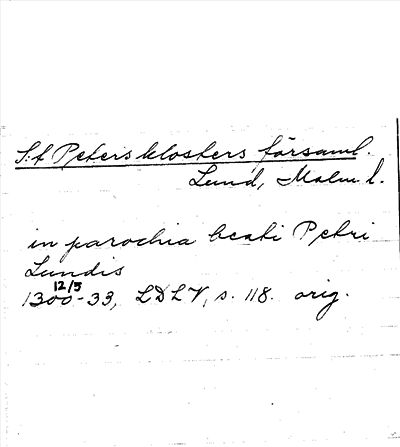 S:t Peters klosters församl.
Lund, Malm. l.
in parochia beati Petri
Lundis
12/5
1300-33, LDLV, s. 118. orig.